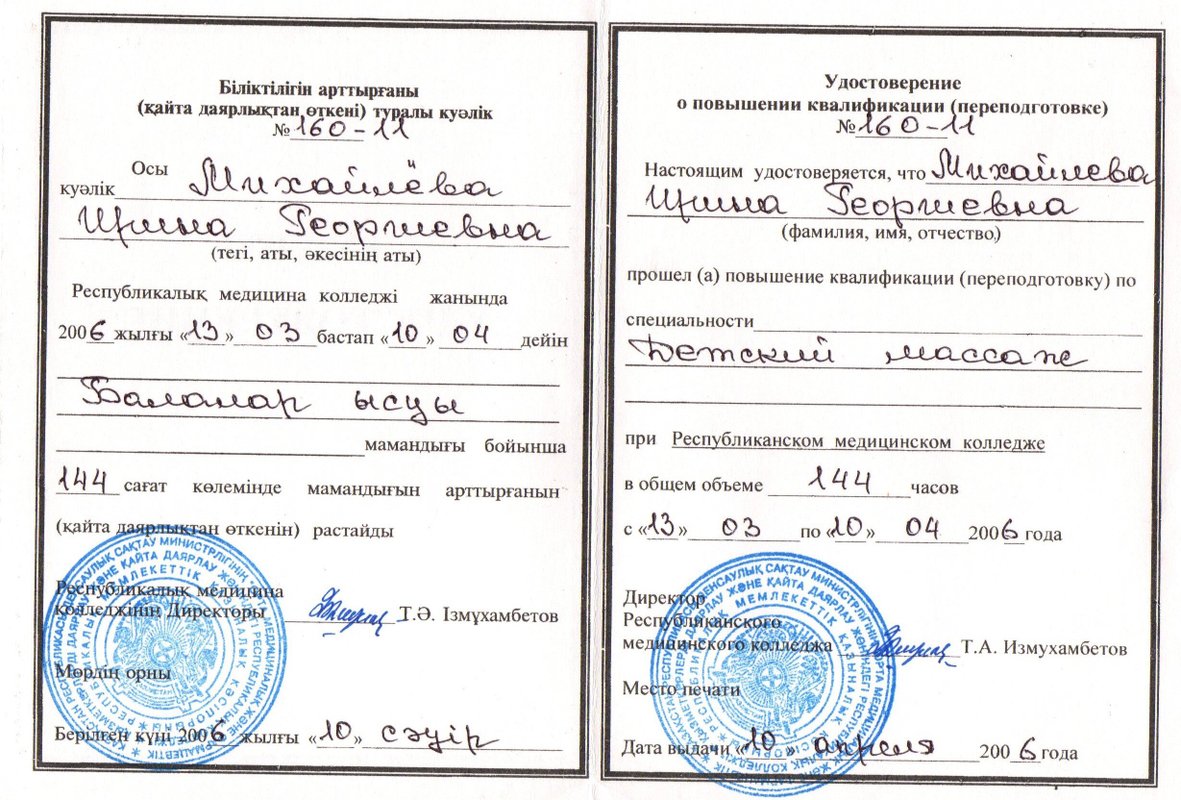 Біліктілігін арттырғаны
(қайта даярлықтан өткені) туралы куәлік
№ 160-11
Осы
куәлік Михайлёва
Ирина Георгиевна
(тегі, аты, әкесінің аты)
Республикалық медицина колледжі жанында
2006 жылғы «13» 03 бастап «10» 04 дейін
Балалар ысцы
мамандығы бойынша
144 сағат көлемінде мамандығын арттырғанын
(қайта даярлықтан өткенін) растайды
Республикалық медицина
колледжінің Директоры Т.Ә. Ізмұхамбетов
Мөрдің орны
Берілген күні 2006 жылғы «10» сәуір
Удостоверение
о повышении квалификации (переподготовке)
№ 160-11
Настоящим удостоверяется, что Михайлева
Ирина Георгиевна
(фамилия, имя, отчество)
прошел (а) повышение квалификации (переподготовку) по
специальности
Детский массаж
при Республиканском медицинском колледже
в общем объеме 144 часов
с «13» 03 по «10» 04 2006 года
Директор
Республиканского
медицинского колледжа Т.А. Измухамбетов
Место печати
Дата выдачи «10» апреля 2006 года